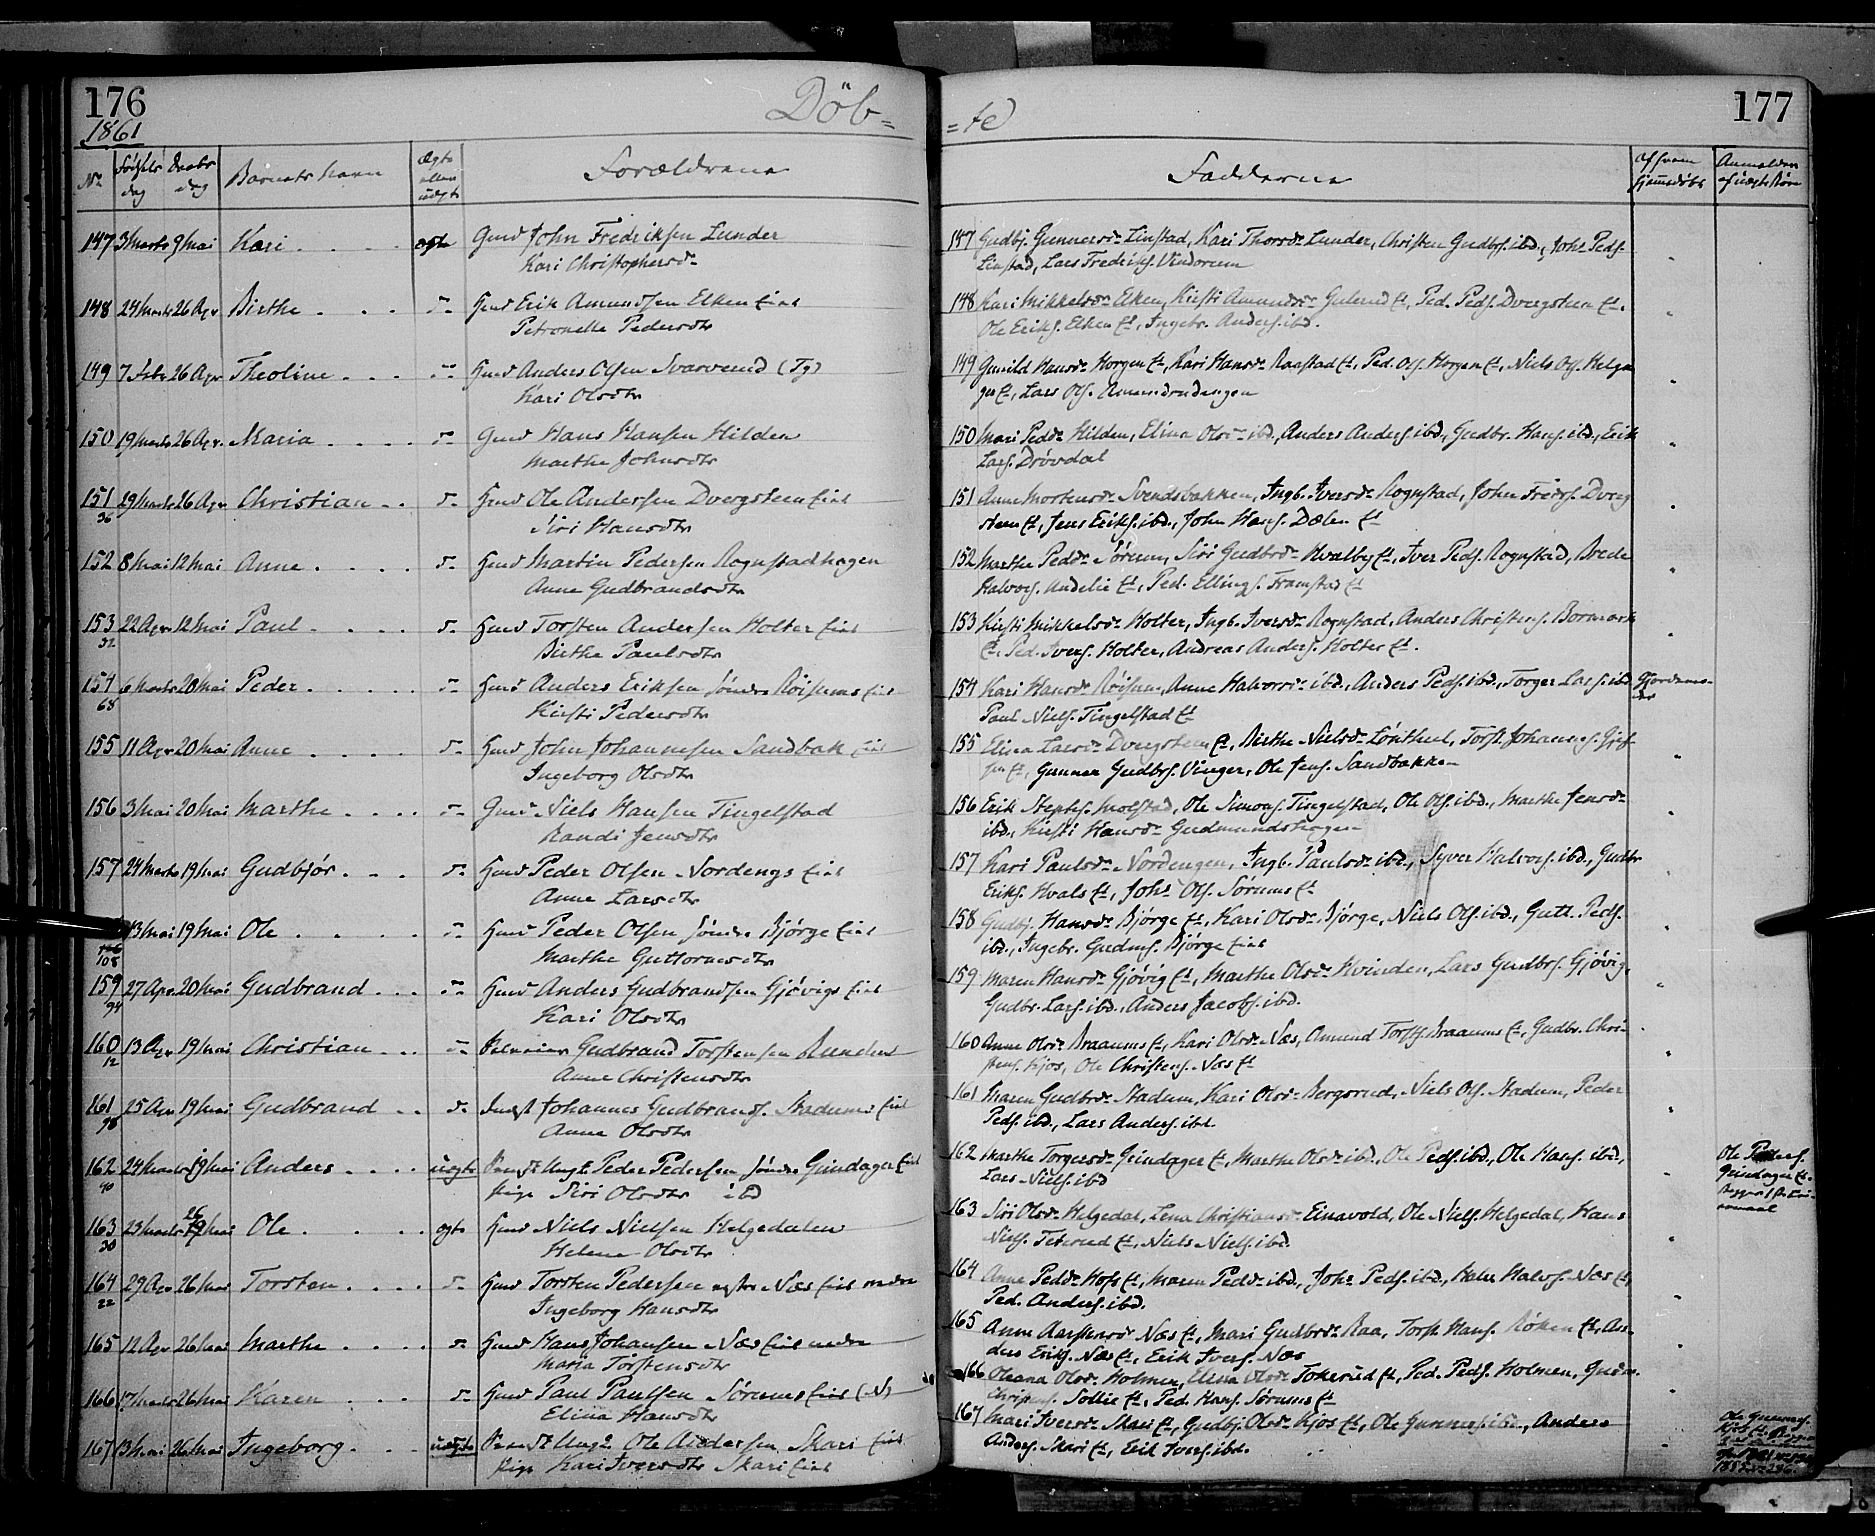 176
1861
Döb=
No Fødsels dag Daabs dag Barnets Navn Ægte eller uægte Forældrene
147 3 Marts 9 Mai Kari . . . . ægte Gmd John Fredriksen Lunder
Kari Christophersdr
148 24 Marts 26 Apr Birthe . . . Hmd Erik Amundsen Elken Eiet
Petronelle Pedersdtr
149 7 Febr 26 Apr Theoline . . . Hmd Anders Olsen Svarverud (Tg)
Kari Olsdtr
150 19 Marts 26 Apr. Maria . . . . Gmd Hans Hansen Hilden
Marthe Johnsdtr
151 29 Marts 26 Apr Christian . . Hmd Ole Andersen Dvergsteen Eiet
36 Siri Hansdtr
152 8 Mai 12 Mai Anne . . . . Hmd Martin Pedersen Rognstadhagen
Anne Gudbrandsdtr
153 22 Apr 12 Mai Paul . . . . Hmd Torsten Andersen Holter Eiet
32 Birthe Paulsdtr
154 6 Marts 20 Mai Peder . . . . Hmd Anders Eriksen søndre Røisums Eiet
68 Kirsti Pedersdtr
155 11 Apr 20 Mai Anne . . . . Hmd John Johannesen Sandbak Eiet
Ingeborg Olsdtr
156 3 Mai 20 Mai Marthe . . . . Gmd Niels Hansen Tingelstad
Randi Jensdtr
157 24 Marts 19 Mai Gudbjør . . . Hmd Peder Olsen Nordengs Eiet
Anne Larsdtr
13 Mai 19 Mai Ole . . . . Hmd Peder Olsen søndre Bjørge Eiet
108 Marthe Guttormsdtr
159 27 Apr 20 Mai Gudbrand . . . Hmd Anders Gudbrandsen Gjøvigs Eiet
94 Kari Olsdtr
160 13 Apr 19 Mai Christian . . . Gudbrand Torstensen
12 Anne Christensdtr
161 25 Apr 19 Mai Gudbrand . . Indst Johannes Gudbrands. Stadums Eiet
98 Anne Olsdtr
162 24 Marts 19 Mai Anders . . . . uægte Ungk. Peder Pedersen søndre Grindager Eiet
40 Pige Siri Olsdtr ibd
163 23 Marts 26 Mai Ole . . . . ægte Hmd Niels Nielsen Helgedalen
30 Helene Olsdtr
164 29 Apr 26 Mai Torsten . . . . Hmd Torsten Pedersen Næs Eiet nedre
22 Ingeborg Hansdtr
165 12 Apr 26 Mai Marthe . . . . Hmd Hans Johansen Næs Eiet nedre
Maria Torstensdtr
166 17 Marts 26 Mai Karen . . . . Hmd Paul Paulsen Sørums Eiet
Elina Hansdtr
167 13 Mai 26 Mai Ingeborg . . uægte Ungk. Ole Andersen Skari Eiet
Pige Kari Iversdtr Skari Eiet
=te
177
Fadderne
af hvem hjemmedøbt
Anmelder af uægte Børn
147 Gudbj. Gunnersdr Linstad, Kari Thorsdr Lunder, Christen Gudbrs. ibd., Johs Peds.
Linstad, Lars Fredriks. Vindorum
148 Kari Mikkelsdr Elken, Kirsti Amundsdr Gulerud Et, Ped. Peds. Dvergsteen Et,
Ole Eriks. Elken Et, Ingebr. Anders. ibd.
149 Gunild Hansdr Horgen Et, Kari Hansdr Raastad Et, Ped. Ols. Horgen Et, Niels Ols.
Et, Lars Ols.
150 Mari Pedr Hilden, Elina Olsdr ibd, Anders Anders. ibd., Gudbr. Hans. ibd., Erik
Lars. Drøvdal
151 Anne Mortensdr Svendsbakken, Ingb. Iversdr Rognstad, John Fredrs. Dverg
steen Et, Jens Eriks. ibd., John Hans. Dælen Et
152 Marthe Pedr Sørum, Siri Gudbrdr Hvalby Et, Iver Peds. Rognstad, Brede
Halvors. Et, Ped. Ellings. Framstad Et
153 Kirsti Mikkelsdr Holter, Ingb. Iversdr Rognstad, Anders Christens.
Et, Ped. Ivers. Holter, Andreas Anders. Holter Et.
154 Kari Hansdr Røisum, Anne Halvorsdr ibd, Anders Peds. ibd., Torger Lars. ibd Gjordemo-
der
Paul Niels. Tingelstad Et
155 Elina Larsdr Dvergsteen Et, Birthe Nielsdr, Torst. Johannes.
Et, Gunner Gudbrs. Vinger, Ole Jens. Sandbakken
156 Erik Stephs. Molstad, Ole Simons. Tingelstad, Ole Ols. ibd., Marthe Jensdr
ibd., Kirsti Hansdr Gudmundshagen
157 Kari Paulsdr Nordengen, Ingb. Paulsdr ibd., Syver Halvors. ibd., Gudbr
Eriks. Hvals Et, Johs Ols. Sørums Et
158 Gudbj. Hansdr Bjørge Et, Kari Olsdr Bjørge, Niels Ols. ibd., Gutt. Peds.
ibd., Ingebr. Gudms. Bjørge Eiet
159 Maren Hansdr Gjøvig Et, Marthe Olsdr Kvinden, Lars Gudbrs. Gjøvig,
Gudbr. Lars. ibd., Anders Jacobs. ibd.
160 Anne Olsdr Braaums Et, Kari Olsdr Næs, Amund Torsts. Braaums Et, Gudbr. Chri-
stens. Kjos, Ole Christens. Næs Et
161 Maren Gudbrdr Stadum, Kari Olsdr Bergsrud, Niels Ols. Stadum, Peder
Peds. ibd., Lars Anders. ibd.
162 Marthe Torgersdr Grindager Et, Marthe Olsdr ibd., Ole Peds. ibd., Ole Hans. ibd.,
Lars Niels. ibd
Ole Peders.
Grindager Et.
163 Siri Olsdr Helgedal, Lena Christiansdr Einavold, Ole Niels. Helgedal, Hans
Niels. Teterud Et, Niels Niels. ibd.
164 Anne Pedr Hofs Et, Maren Pedr ibd., Johs Peds. ibd., Halvs. Næs Et,
Ped. Anders. ibd.
165 Anne Næs Et, Mari Gudbrdr Raa, Torst. Hans. Røken Et, An-
ders Eriks. Næs Et, Erik Ivers. Næs
166 Oleana Olsdr Holmen, Elina Olsdr Tokerud Et, Ped. Peds. Holmen, Gudm.
Sollie Et, Ped. Hans. Sørums Et
167 Mari Iversdr Skari Et, Gudbj. Olsdr Kjos Et, Ole Gunners. ibd., Anders
Anders. Skari Et, Erik Ivers. ibd.
Ole Gunners.
Kjos Et